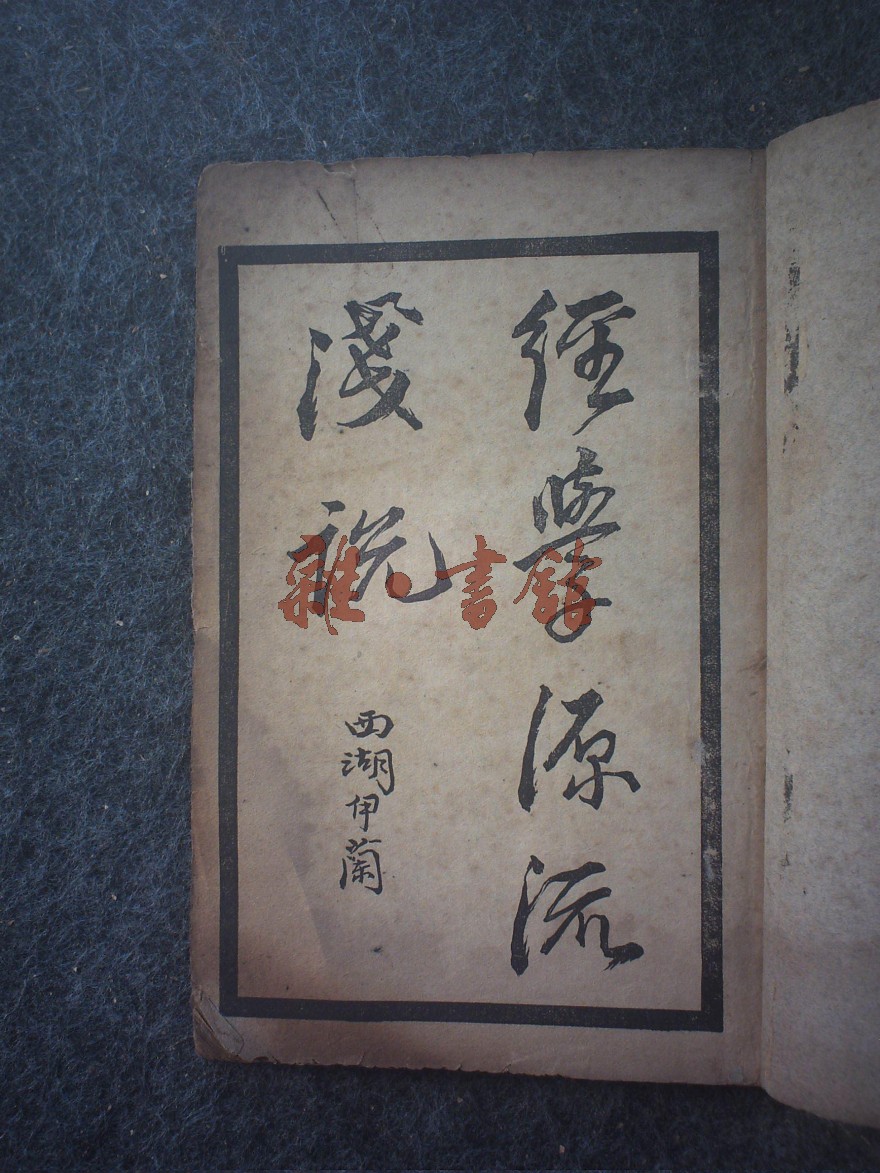 經學源流
淺說
西湖伊蘭
雜·書館